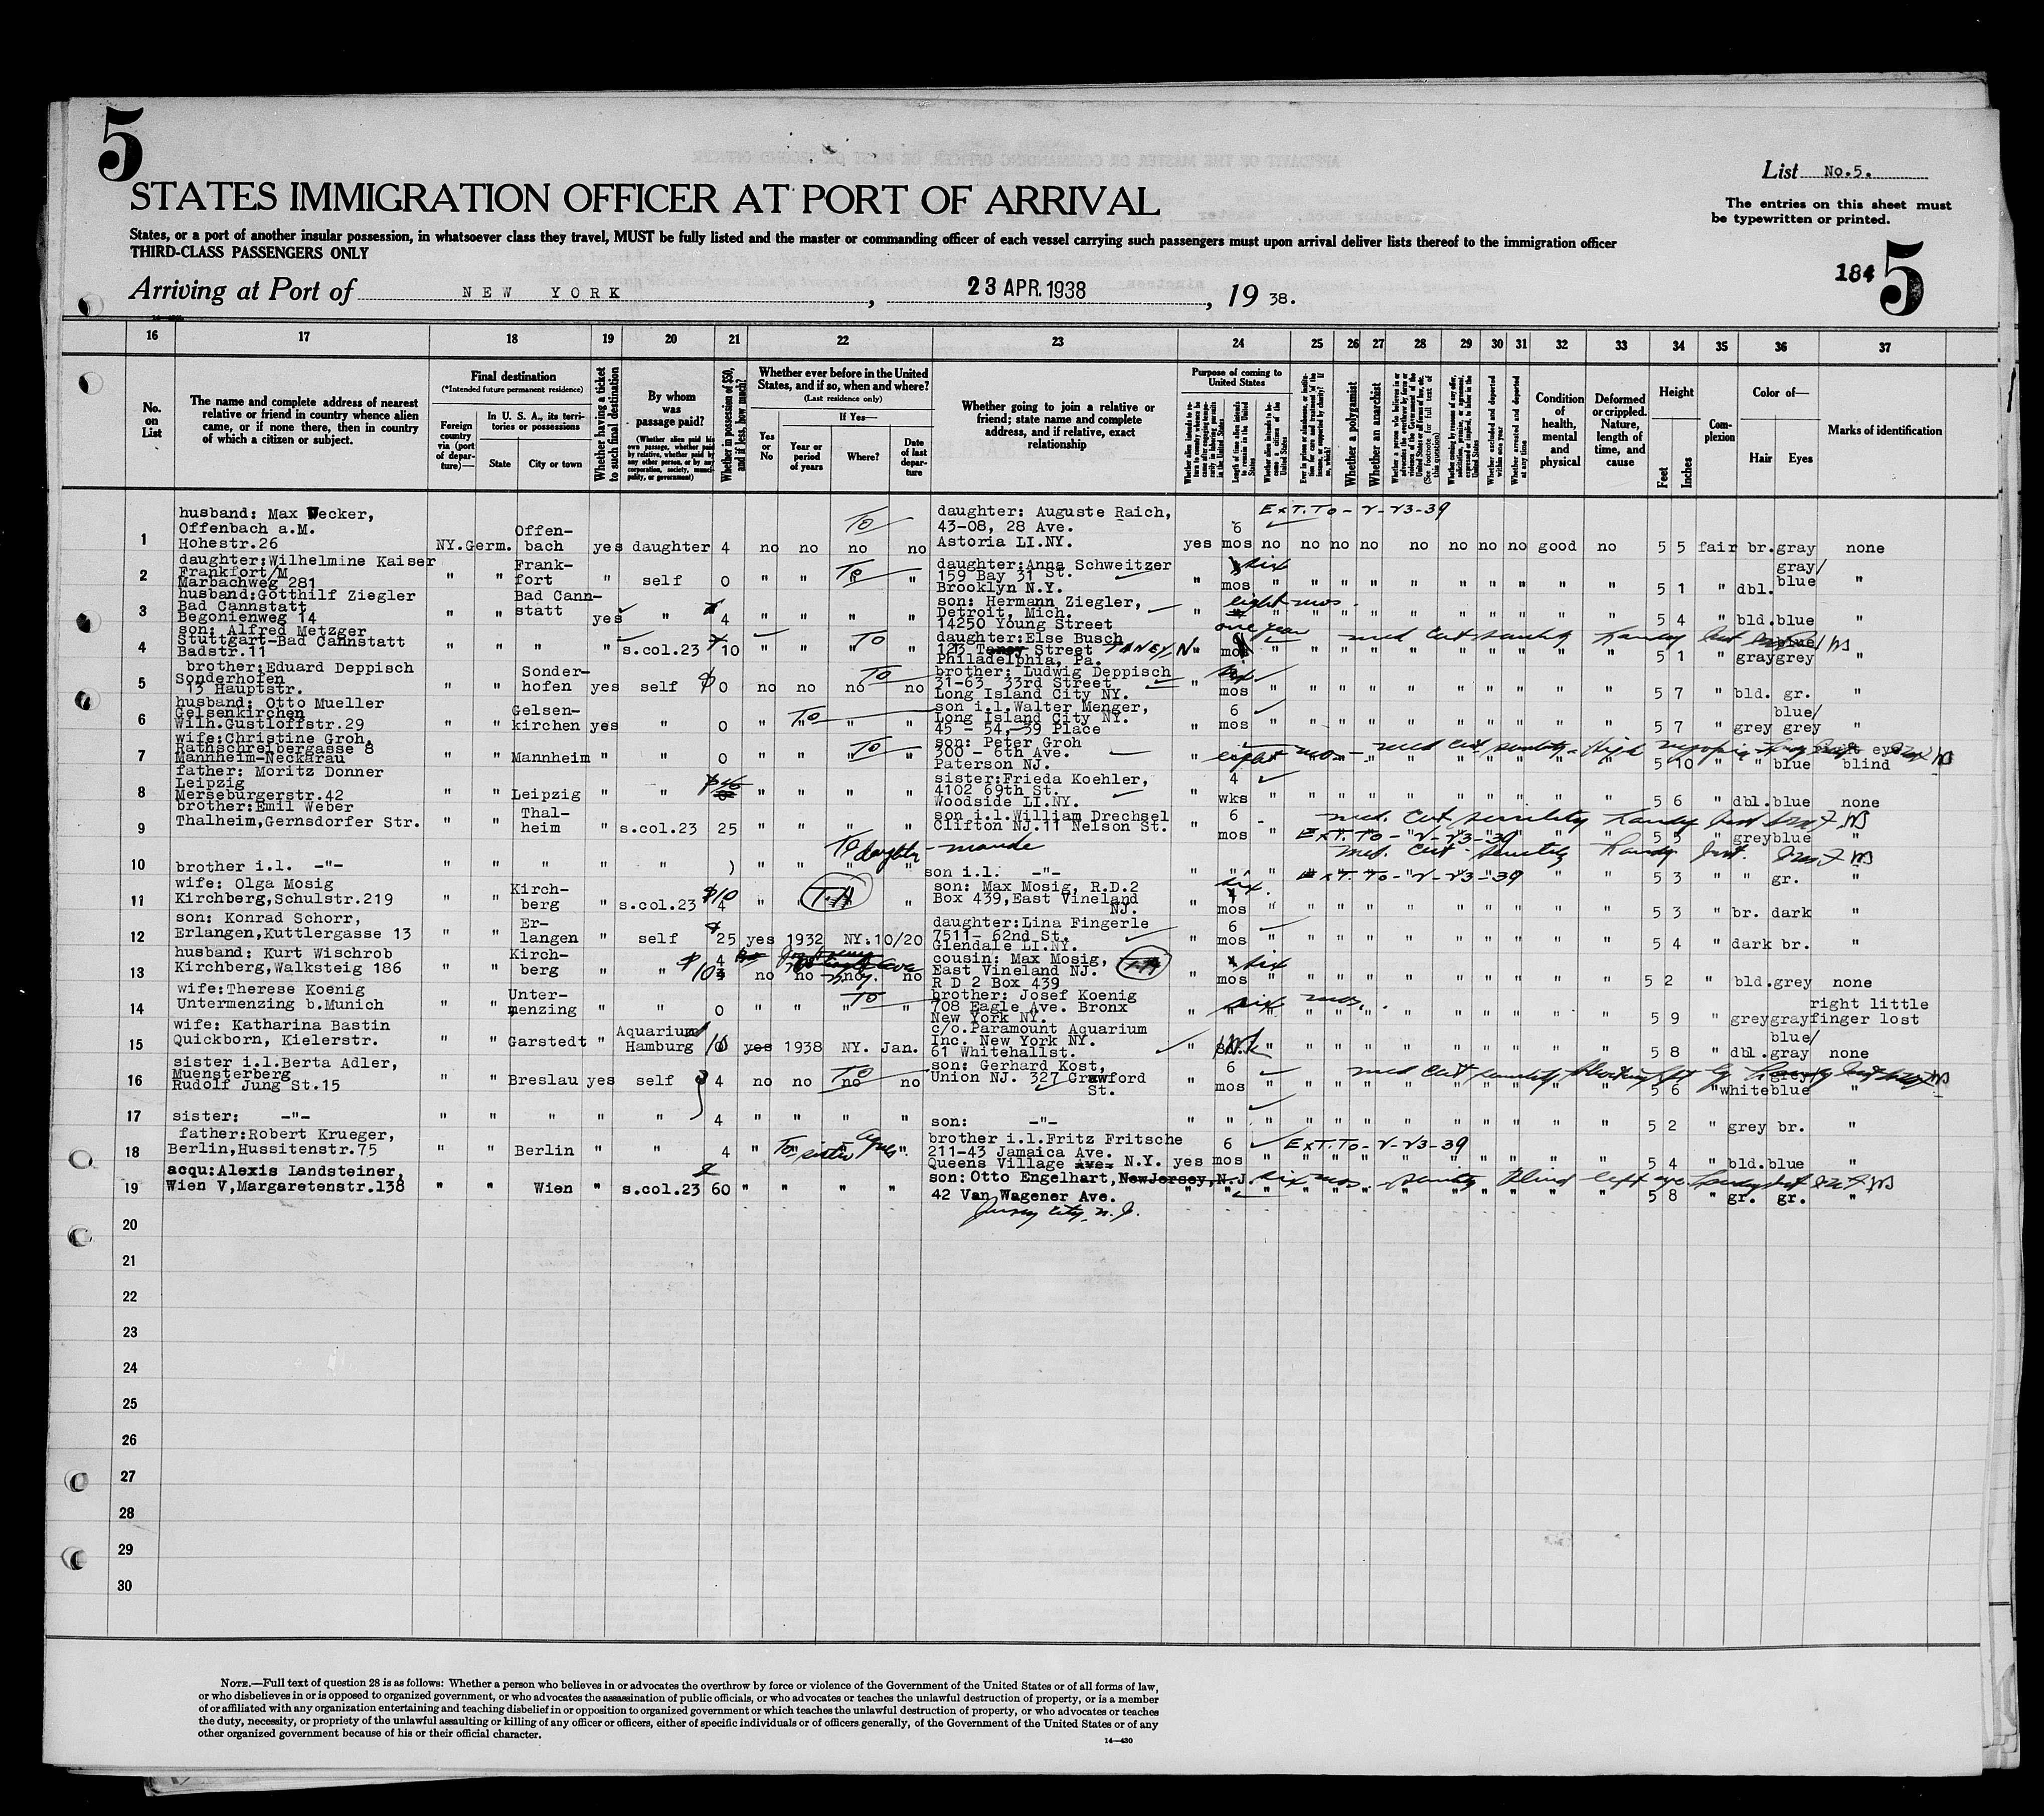 5
STATES IMMIGRATION OFFICER AT PORT OF ARRIVAL
List No.5.
The entries on this sheet must
be typewritten or printed.
States, or a port of another insular possession, in whatsoever class they travel, MUST be fully listed and the master or commanding officer of each vessel carrying such passengers must upon arrival deliver lists thereof to the immigration officer
THIRD-CLASS PASSENGERS ONLY
184 5
Arriving at Port of NEW YORK, 23 APR. 1938, 19 38.
16 17 18 19 20 21 22 23 24 25 26 27 28 29 30 31 32 33 34 35 36 37
No. on List
The name and complete address of nearest relative or friend in country whence alien came, or if none there, then in country of which a citizen or subject.
Final destination
(*Intended future permanent residence)
Foreign country via (port of departure)—
In U. S. A., its territories or possessions
State
City or town
Whether having a ticket to such final destination
By whom was passage paid?
(Whether alien paid his own passage, whether paid by relative, whether paid by any other person, or by any corporation, society, municipality, or government)
Whether in possession of $50, and if less, how much?
Whether ever before in the United States, and if so, when and where?
(Last residence only)
Yes or No
If Yes—
Year or period of years
Where?
Date of last departure
Whether going to join a relative or friend; state name and complete address, and if relative, exact relationship
Purpose of coming to United States
Whether a polygamist
Whether an anarchist
Condition of health, mental and physical
Deformed or crippled. Nature, length of time, and cause
Height
Feet
Inches
Complexion
Color of—
Hair
Eyes
Marks of identification
1 husband: Max Wecker, Offenbach a.M. Hohestr.26 NY.Germ. Offenbach yes daughter 4 no no no no To daughter: Auguste Raich, 43-08, 28 Ave. Astoria LI.NY. yes 6 mos no no no no no no no no good no 5 5 fair br. gray none
Ext. To - V-23-39
2 daughter:Wilhelmine Kaiser Frankfort/M Marbachweg 281 " " Frankfort " self 0 " " " " daughter:Anna Schweitzer 159 Bay 31 St. Brooklyn N.Y. " six mos " " " " " " " " " " 5 1 " dbl. gray/blue "
3 husband:Gotthilf Ziegler Bad Cannstatt Begonienweg 14 " " Bad Cannstatt yes " 4 " " " " son: Hermann Ziegler, Detroit, Mich. 14250 Young Street " eight mos. " " " " " " " " " " 5 4 " bld. blue "
4 son: Alfred Metzger Stuttgart-Bad Cannstatt Badstr.11 " " " " s.col.23 10 " " To " daughter:Else Busch 123 Street TANEY N. Philadelphia, Pa. " one year mos " " " " " " " " " " 5 1 " gray grey "
med cert senility
5 brother:Eduard Deppisch Sonderhofen 13 Hauptstr. " " Sonderhofen yes self $ 0 no no no no To brother: Ludwig Deppisch 31-63 33rd Street Long Island City NY. " six mos " " " " " " " " " " 5 7 " bld. gr. "
6 husband: Otto Mueller Gelsenkirchen Wilh.Gustloffstr.29 " " Gelsenkirchen yes " 0 " " " " To son i.l.Walter Menger, Long Island City NY. 45 - 54, 39 Place " 6 mos " " " " " " " " " " 5 7 " grey blue/grey "
7 wife:Christine Groh, Rathschreibergasse 8 Mannheim-Neckarau " " Mannheim " " 0 " " " " To son: Peter Groh 300 - 6th Ave. Paterson NJ. " eight mos - med cert senility - High myopia " " 5 10 " " blue blind
8 father: Moritz Donner Leipzig Merseburgerstr.42 " " Leipzig " " " " " " sister:Frieda Koehler, 4102 69th St. Woodside LI.NY. " 4 wks " " " " " " " " " " 5 6 " dbl. blue none
9 brother:Emil Weber Thalheim,Gernsdorfer Str. " " Thalheim " s.col.23 25 " " " " son i.l.William Drechsel Clifton NJ.11 Nelson St. " 6 mos " med. cert senility 5 5 " grey blue "
Ext. To - V-23-39
To daughter -
10 brother i.l. -"- " " " " " ) " " " " son i.l. -"- " " " med. cert - senility 5 3 " " gr. "
Ext. To - V-23-39
11 wife: Olga Mosig Kirchberg,Schulstr.219 " " Kirchberg " s.col.23 $10 4 " " T.A " son: Max Mosig, R.D.2 Box 439,East Vineland NJ. " six mos " " " " " " " " " " 5 3 " br. dark "
12 son: Konrad Schorr, Erlangen,Kuttlergasse 13 " " Erlangen " self $ 25 yes 1932 NY. 10/20 daughter:Lina Fingerle 7511- 62nd St. Glendale LI.NY. " 6 mos " " " " " " " " " " 5 4 " dark br. "
13 husband: Kurt Wischrob Kirchberg,Walksteig 186 " " Kirchberg " " $ 10 4 no no no no cousin: Max Mosig, East Vineland NJ. R D 2 Box 439 T.A " six mos " " " " " " " " " " 5 2 " bld. grey none
14 wife:Therese Koenig Untermenzing b.Munich " " Untermenzing " " 0 " " " " To brother: Josef Koenig 708 Eagle Ave. Bronx New York NY. " six mos. " " " " " " " " " " 5 9 " grey gray right little finger lost
15 wife: Katharina Bastin Quickborn, Kielerstr. " " Garstedt " Aquarium Hamburg yes 1938 NY. Jan. c/o.Paramount Aquarium Inc. New York NY. 61 Whitehallst. " " " " " " " " " " " 5 8 " dbl. blue/gray none
16 sister i.l.Berta Adler, Muensterberg Rudolf Jung St.15 " " Breslau yes self 4 no no no no To son: Gerhard Kost, Union NJ. 327 Crawford St. " 6 mos " med cert senility 5 6 " white blue "
17 sister: -"- " " " " " 4 " " " " son: -"- " " " " " " " " " " " " 5 2 " grey br. "
18 father:Robert Krueger, Berlin,Hussitenstr.75 " " Berlin " " 4 " To sister " brother i.l.Fritz Fritsche 211-43 Jamaica Ave. Queens Village Ave. N.Y. yes 6 mos " " " " " " " " " " 5 4 " bld. blue "
Ext. To - V-23-39
19 acqu:Alexis Landsteiner, Wien V,Margaretenstr.138 " " Wien " s.col.23 60 " " " " son: Otto Engelhart, New Jersey, N.J. 42 Van Wagener Ave. Jersey City, N.J. " six mos. senility blind left eye 5 8 " gr. gr. "
20
21
22
23
24
25
26
27
28
29
30
NOTE.—Full text of question 28 is as follows: Whether a person who believes in or advocates the overthrow by force or violence of the Government of the United States or of all forms of law,
or who disbelieves in or is opposed to organized government, or who advocates the assassination of public officials, or who advocates or teaches the unlawful destruction of property, or is a member
of or affiliated with any organization entertaining and teaching disbelief in or opposition to organized government or which teaches the unlawful destruction of property, or who advocates or teaches
the duty, necessity, or propriety of the unlawful assaulting or killing of any officer or officers, either of specific individuals or of officers generally, of the Government of the United States or of any
other organized government because of his or their official character.
14—430